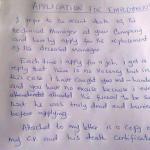 APPLICATION FOR EMPLOYMENT
I refer to the recent death of the
Technical Manager at your Company
and hereby apply for the replacement
of the deceased manager.
Each time I apply for a job, I get a
reply that there is no vacancy but in
this case I have caught you red-handed
and you have no excuse because I even
attended the funeral to be sure
that he was truly dead and buried
before applying.
Attached to my letter is a copy of
my CV and his death certificate.